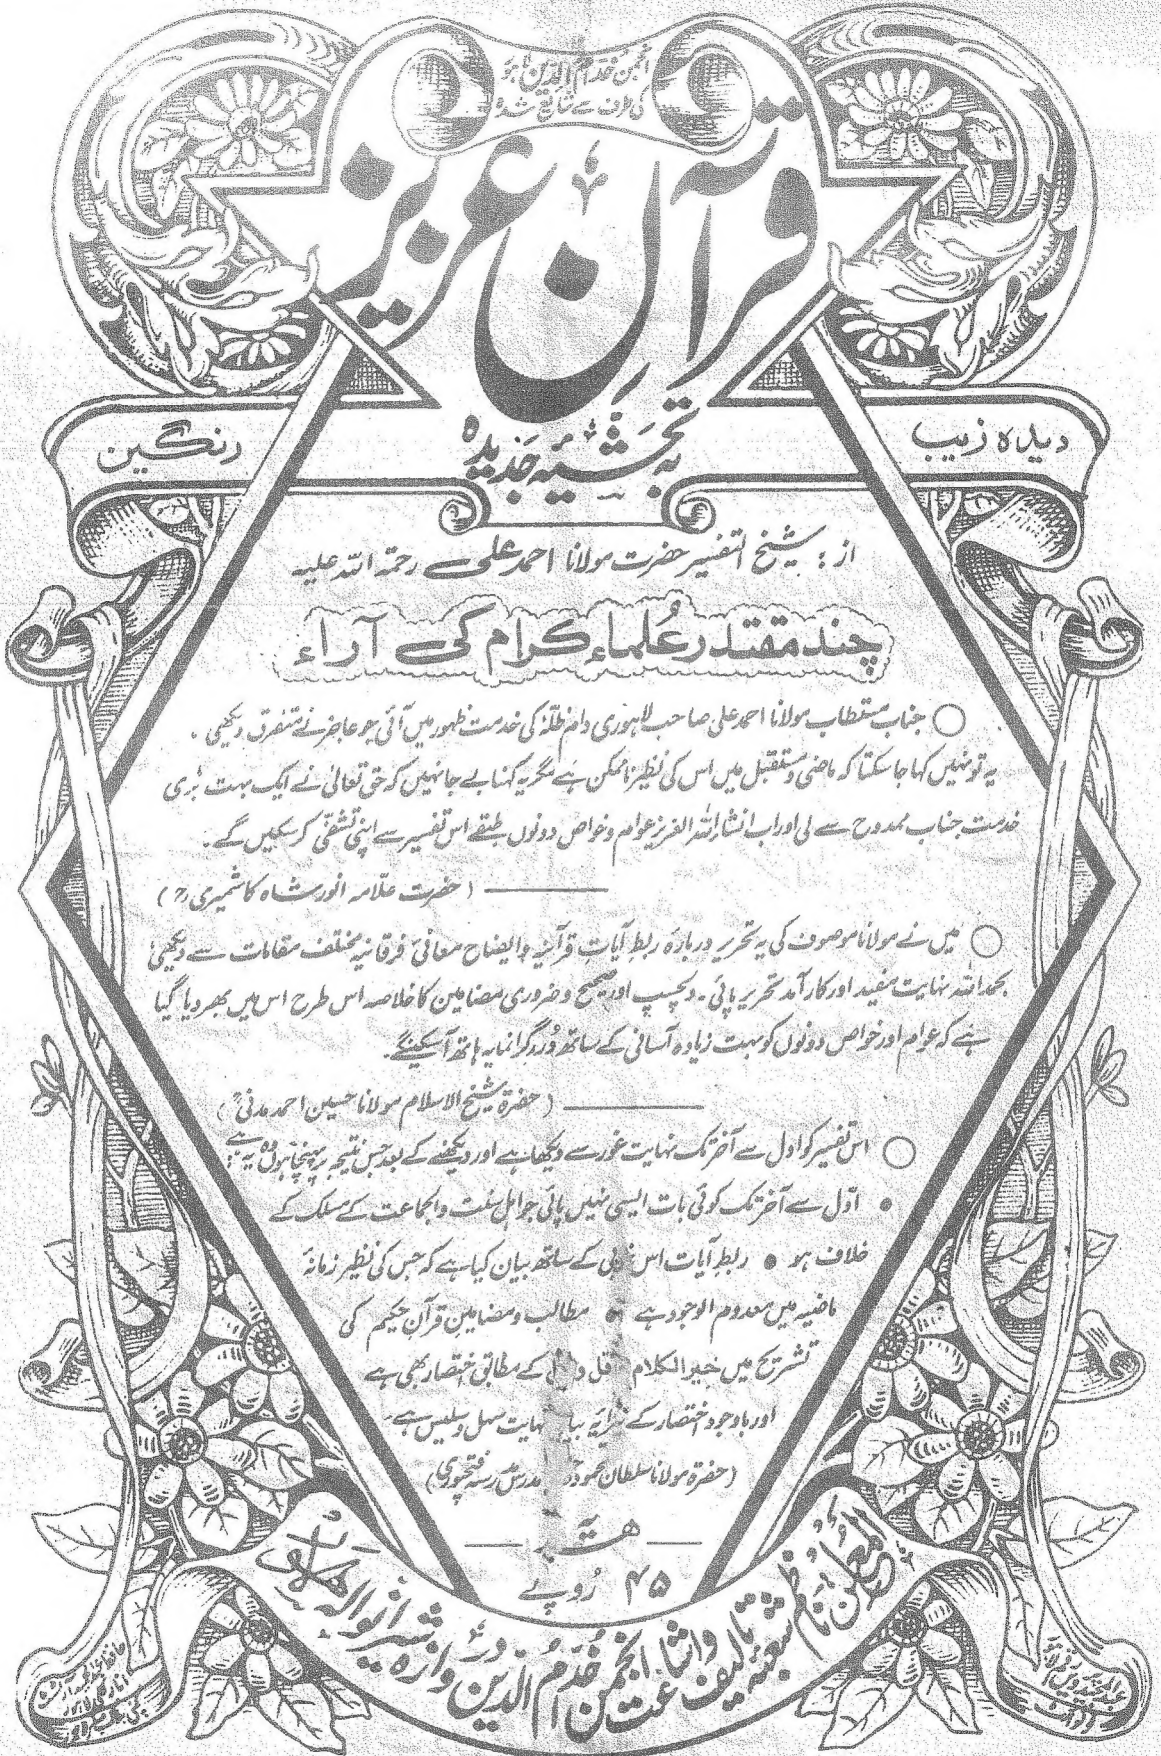 انجمن خدام الدین لاہور
کی طرف سے شائع شدہ
قرآن عزیز
دیدہ زیب
رنگین
بہ تحشیۂ جدیدہ
از : شیخ التفسیر حضرت مولانا احمد علی رحمۃ اللہ علیہ
چند مقتدر عُلماء کرام کی آراء
جناب مستطاب مولانا احمد علی صاحب لاہوری دام ظلہٗ کی خدمت ظہور میں آئی جو عاجز نے متفرق دیکھی ۔
یہ تو نہیں کہا جا سکتا کہ ماضی و مستقبل میں اس کی نظیر ناممکن ہے مگر یہ کہنا بے جا نہیں کہ حق تعالیٰ نے ایک بہت بڑی
خدمت جناب ممدوح سے لی اور اب انشاء اللہ العزیز عوام و خواص دونوں طبقے اس تفسیر سے اپنی تشفی کر سکیں گے ۔
(حضرت علامہ انور شاہ کاشمیری رح)
میں نے مولانا موصوف کی یہ تحریر دربارہ ربط آیات قرآنیہ و ایضاح معانی فرقانیہ مختلف مقامات سے دیکھی
بحمد اللہ نہایت مفید اور کار آمد تحریر پائی ۔ دلچسپ اور صحیح و ضروری مضامین کا خلاصہ اس طرح اس میں بھر دیا گیا
ہے کہ عوام اور خواص دونوں کو بہت زیادہ آسانی کے ساتھ دُررِ گرانمایہ ہاتھ آ سکینگے ۔
(حضرۃ شیخ الاسلام مولانا حسین احمد مدنیؒ)
اس تفسیر کو اول سے آخر تک نہایت غور سے دیکھا ہے اور دیکھنے کے بعد جس نتیجہ پر پہنچا ہوں وہ یہ ہے :
• اوّل سے آخر تک کوئی بات ایسی نہیں پائی جو اہل سنت والجماعت کے مسلک کے
خلاف ہو • ربط آیات اس خوبی کے ساتھ بیان کیا ہے کہ جس کی نظیر زمانۂ
ماضیہ میں معدوم الوجود ہے • مطالب و مضامین قرآن حکیم کی
تشریح میں خیر الکلام قل و کے مطابق اختصار بھی ہے
اور باوجود اختصار کے پیرایہ نہایت سہل و سلیس ہے ۔
(حضرۃ مولانا سلطان محمود مدرس فتحپوری)
ھدیہ
۴۵ رُوپے
المعلن : ناظم شعبۂ تالیف و اشاعت انجمن خُدّامُ الدین دروازہ شیرانوالہ لاہور